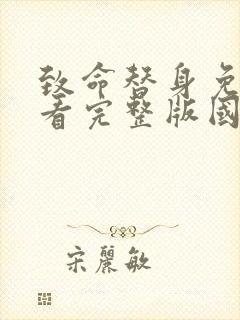 致命替身免
看完整版國
宋麗敏